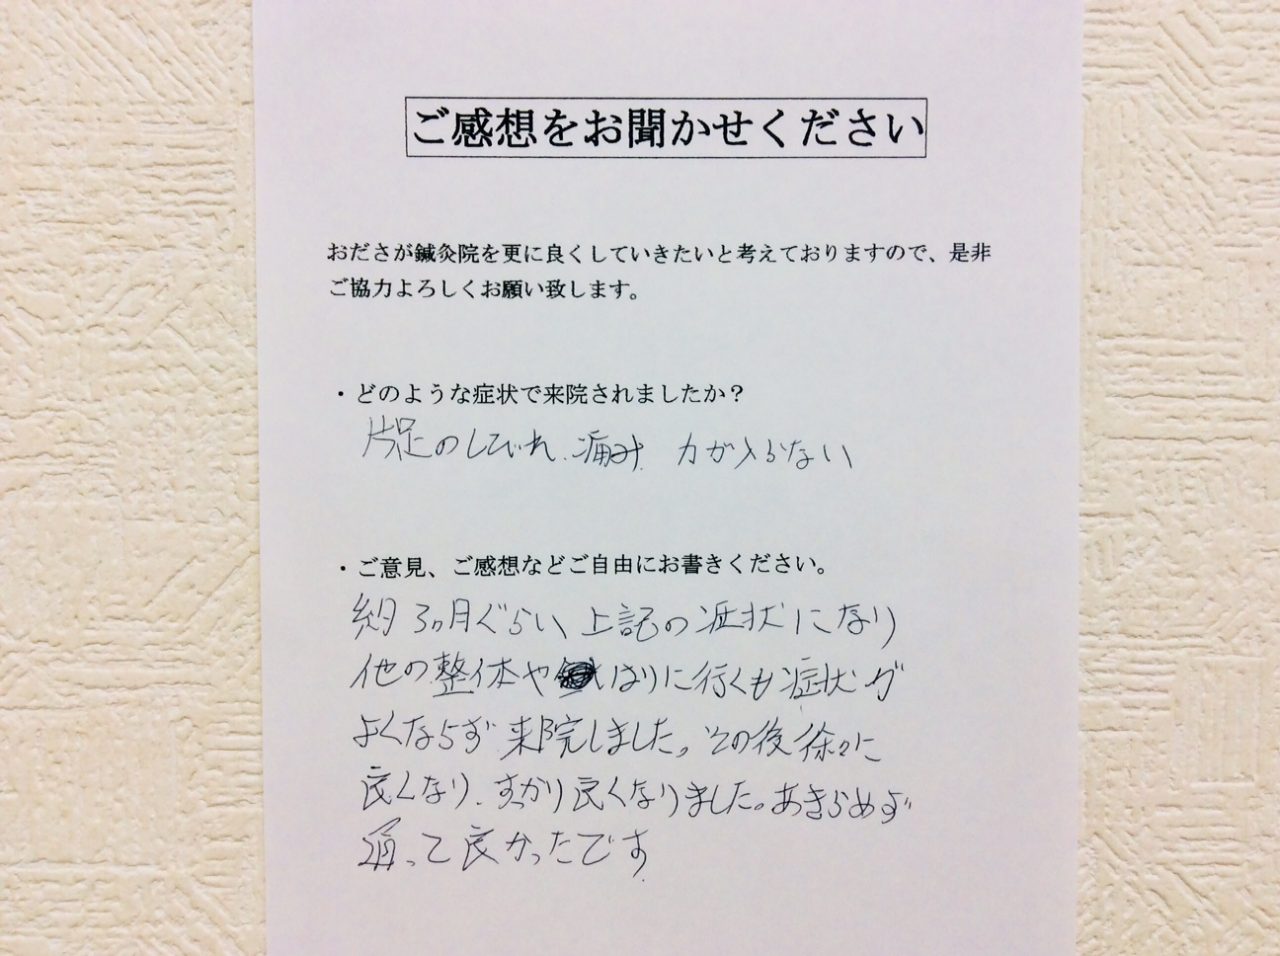 ご感想をお聞かせください
おださが鍼灸院を更に良くしていきたいと考えておりますので、是非
ご協力よろしくお願い致します。
・どのような症状で来院されましたか？
片足のしびれ、痛み、力が入らない
・ご意見、ご感想などご自由にお書きください。
約3ヶ月ぐらい上記の症状になり
他の整体やはりに行くも症状が
よくならず来院しました。その後徐々に
良くなり、すっかり良くなりました。あきらめず
通って良かったです